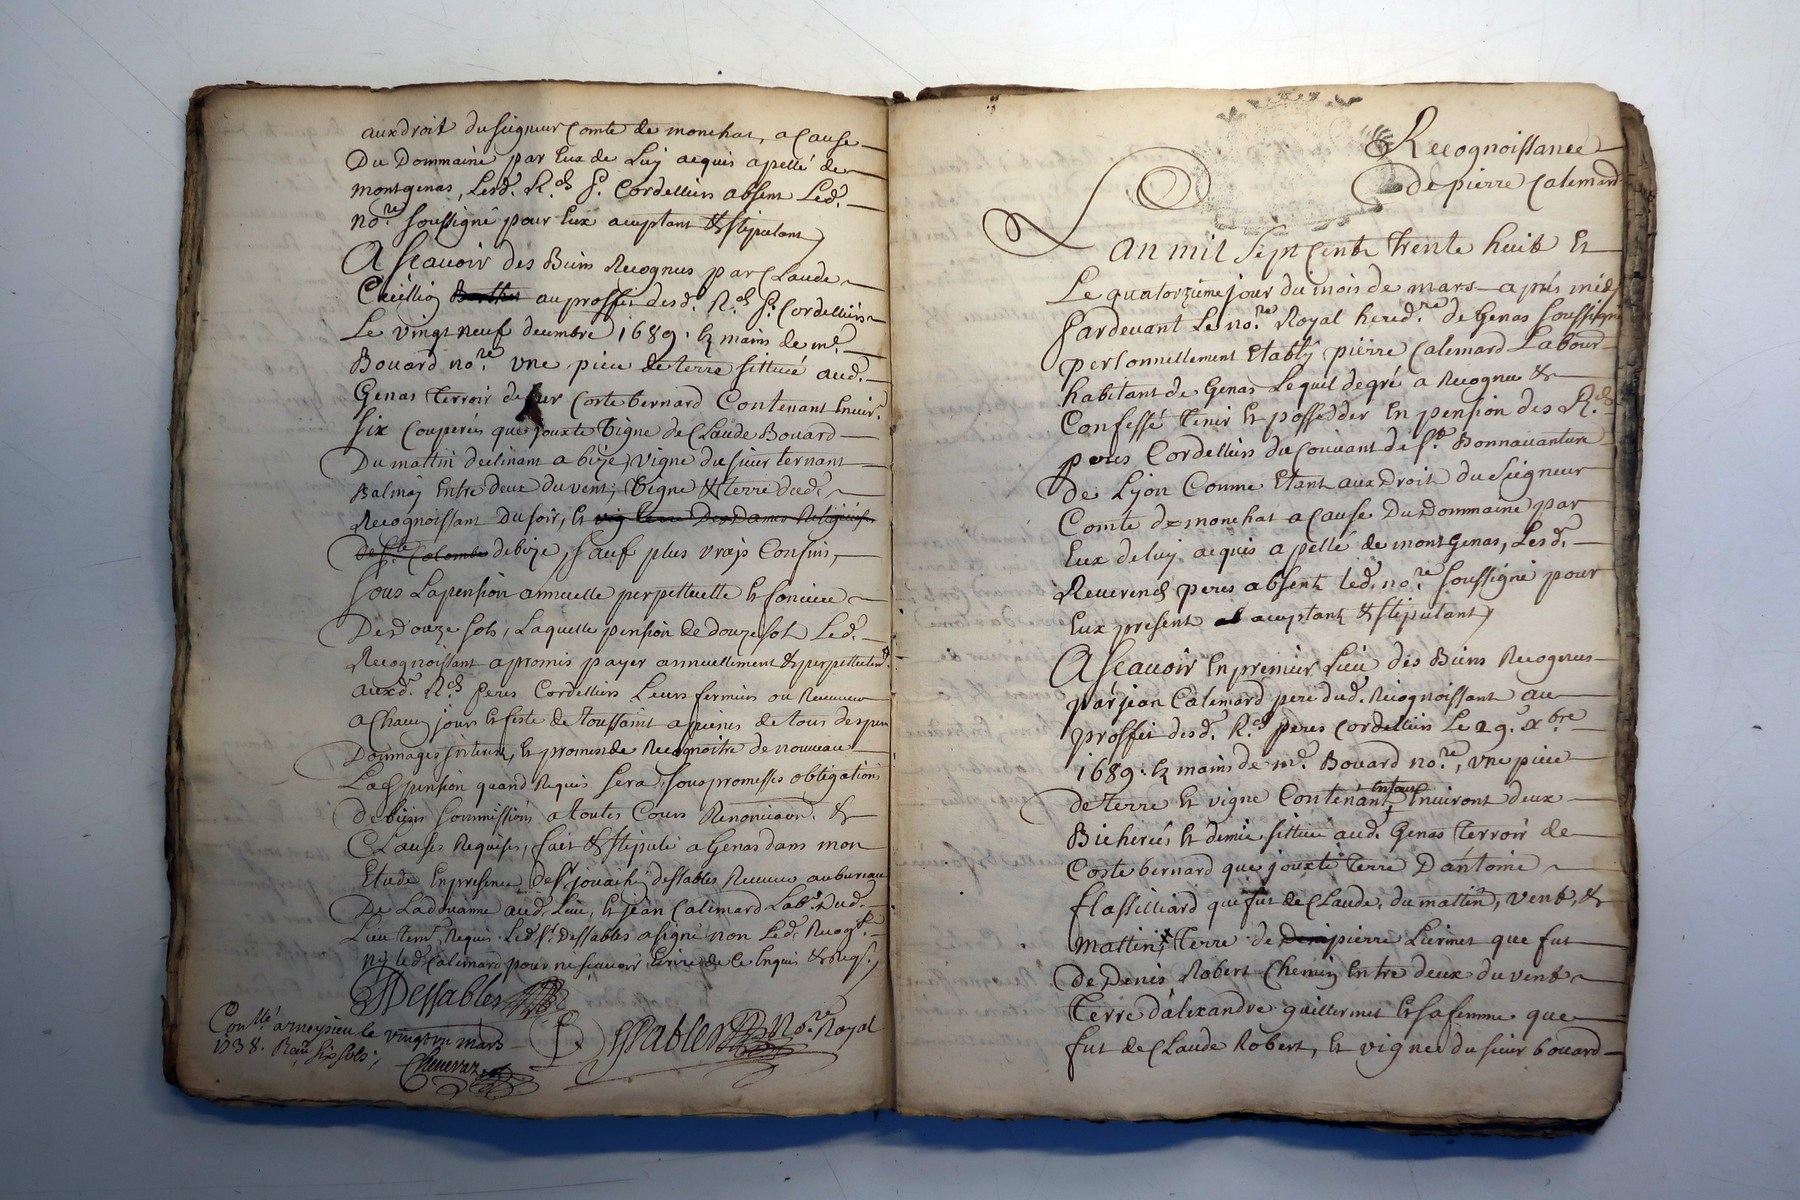 aux droit du seigneur Comte de monchat, a Cause
Du Dommaine par Eux de Luy acquis apellé de
montgenas, Lesd. R.ds P. Cordelliers absent Led.
no.re soussigné pour Eux aceptant & stipulant)
A Scauoir des Biens Recognus par Claude
au proffit desd. R.ds P. Cordelliers
Le vingt neuf decembre 1689. Ez mains de me.
Bouard no.re une piece de terre sittuée aud.
Genas Terroir de sur Coste bernard Contenant Enuir.
Six Couperées que jouxte Vigne de Claude Bouard
Du mattin declinant a bize, vigne du sieur ternant
Balmey Entre deux du vent, Vigne & terre dud.
Recognoissant du soir, Et vigne terre Des Dames Religieuses
de Ste. Colombe de bize, sauf plus vrays Confins,
Sous La pension annuelle perpettuelle & fonciere
De Douze sols, Laquelle pension de douze sol Led.
Recognoissant a promis payer annuellement & perpettuelm.t
auxd. R.ds peres Cordelliers Leurs fermiers ou Receueur
a Chacun jours & feste de toussaint a peines de tous despens
Dommages jnterest, Et promest de Recognoitre de nouueau
Lad. pension quand Requis sera, sous promesses obligations
De biens soummissions a toutes Cours Renonciaon. &
Clauses Requises, fait & stipulé a Genas dans mon
Etude En presence de Sr. jouachi dessables Receueur au bureau
De La doüanne aud. Lieu, Et jean Calemard Lab.r dud.
Lieu tem. Requis. Led. Sr. Dessables a signé non Led. Recog.t
ny led. Calemard pour ne scauoir Ecrire de ce Enquis & Req.s
Dessables
Dessables No.re Royal
Con.llé a meysieu le vingt un mars
1738. Receu six sols;
Cheneraz
Recognoissance
de pierre Calemard
L'an mil sept Cents trente huit Et
Le quatorzieme jour du mois de mars apres midy
Pardeuant Le no.re Royal hered.re de Genas soussigné
personnellement Etably pierre Calemard Labour
habitant de Genas Lequel de gré a Recognu &
Confessé tenir Et possedder En pension des R.ds
peres Cordelliers du Couuant de St. Bonnauanture
de Lyon Comme Etant aux Droit du Seigneur
Comte de monchat a Cause Du Dommaine par
Eux de luy acquis apellé de montGenas, Lesd.
Reuerends peres absent led. no.re soussigné pour
Eux present aceptant & stipulant)
A Scauoir En premier Lieu des Biens Recognus
par jean Calemard pere dud. Recognoissant au
proffit desd. R.ds peres Cordelliers Le 29.e xbre
1689. Ez mains de me. Bouard no.re, vne piece
de terre Et vigne Contenant en tout Enuiront deux
Bicherées Et demie sittuée aud. Genas Terroir de
Coste bernard que jouxte Terre D'antoine
flassilliard qui fut de Claude, du mattin, vent, &
mattin, Terre de pierre Liermet que fut
De Denis Robert Chemin Entre deux du vent
Terre d'alexandre guillermet Et sa femme que
fut de Claude Robert, Et vigne du sieur bouard